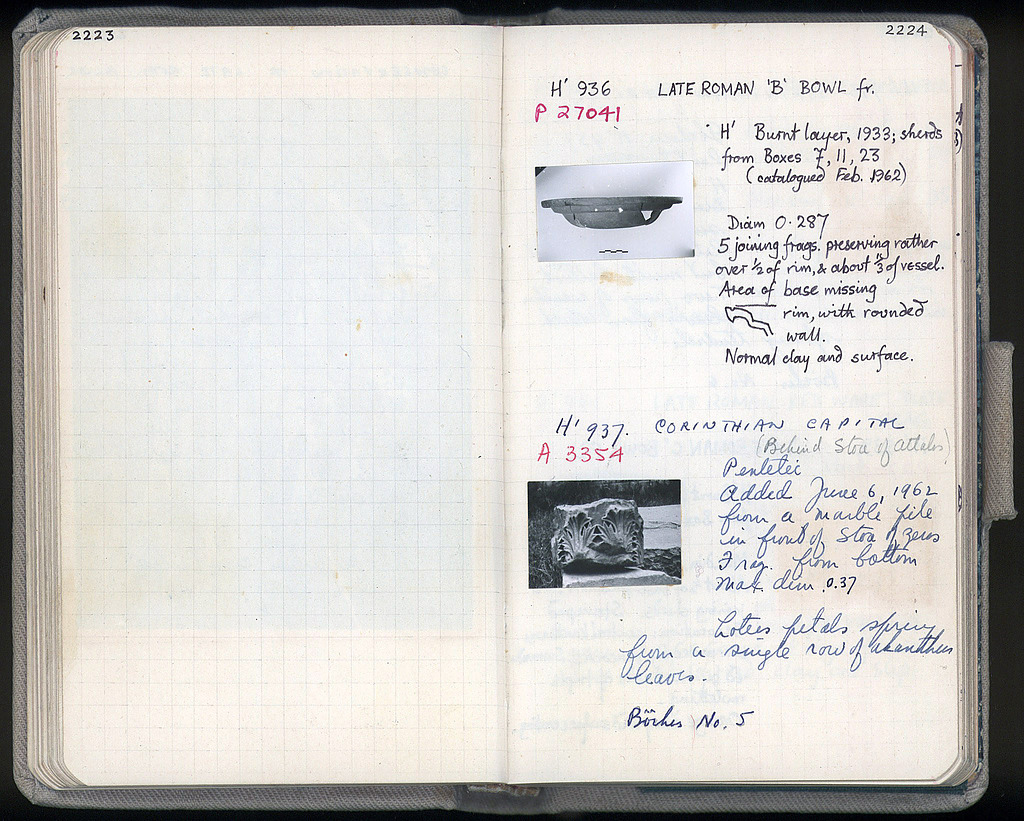 2223
2224
H' 936 LATE ROMAN 'B' BOWL fr.
P 27041
H' Burnt layer, 1933; sherds
from Boxes 7, 11, 23
(catalogued Feb. 1962)
Diam 0.287
5 joining frags. preserving rather
over ½ of rim, & about ⅔ of vessel.
Area of base missing
rim, with rounded
wall.
Normal clay and surface.
H' 937. CORINTHIAN CAPITAL
A 3354
(Behind Stoa of Attalos)
Pentelic
Added June 6, 1962
from a marble pile
in front of Stoa of Zeus
Frag. from bottom
Max. dim. 0.37
Lotus petals spring
from a single row of akanthus
leaves.
No. 5